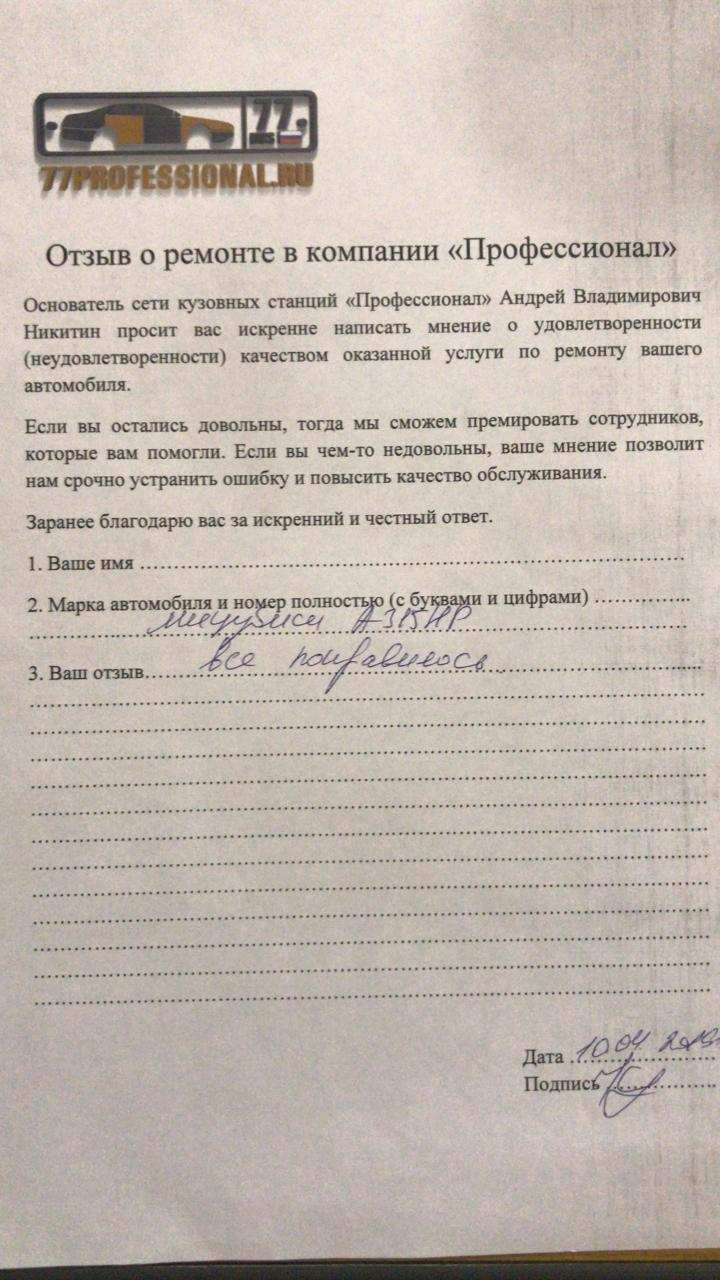 77
RUS
77PROFESSIONAL.RU
Отзыв о ремонте в компании «Профессионал»
Основатель сети кузовных станций «Профессионал» Андрей Владимирович
Никитин просит вас искренне написать мнение о удовлетворенности
(неудовлетворенности) качеством оказанной услуги по ремонту вашего
автомобиля.
Если вы остались довольны, тогда мы сможем премировать сотрудников,
которые вам помогли. Если вы чем-то недовольны, ваше мнение позволит
нам срочно устранить ошибку и повысить качество обслуживания.
Заранее благодарю вас за искренний и честный ответ.
1. Ваше имя
2. Марка автомобиля и номер полностью (с буквами и цифрами)
мицубиси
3. Ваш отзыв все понравилось
Дата 10.04
Подпись